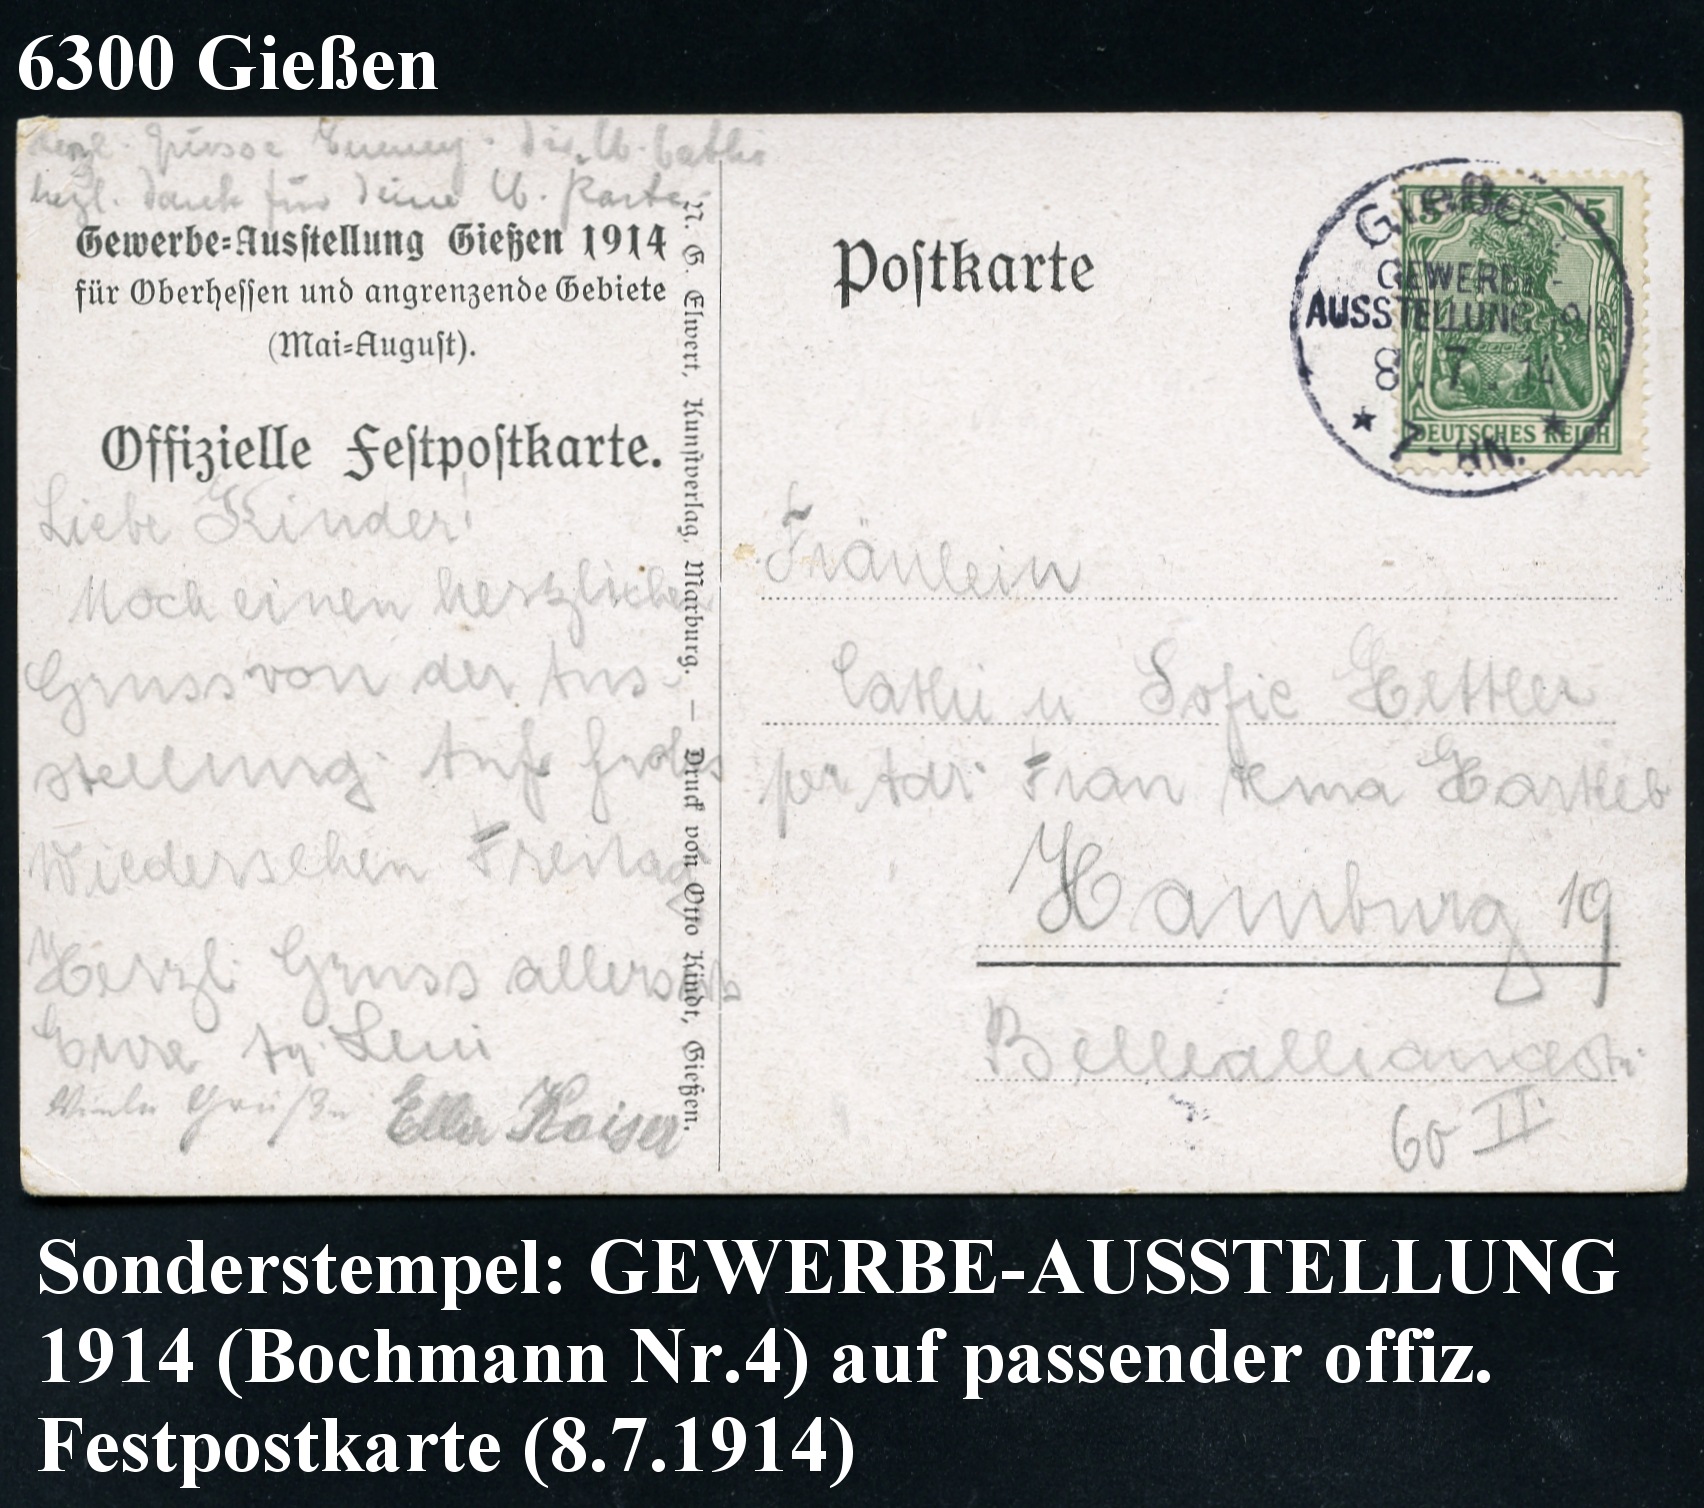 6300 Gießen
herzl. Grüsse
herzl. Dank für Deine lb. Karte
Gewerbe=Ausstellung Gießen 1914
für Oberhessen und angrenzende Gebiete
(Mai=August).
Offizielle Festpostkarte.
Liebe Kinder!
Noch einen herzlichen
Gruss von der Aus-
stellung. Auf frohes
Wiedersehen Freitag
Herzl. Gruss allerseits
Leni
Viele Grüße Ella Kaiser
N. G. Elwert, Kunstverlag, Marburg. — Druck von Otto Kindt, Gießen.
Postkarte
GIEßEN
GEWERBE-
AUSSTELLUNG 1914
8.7.14
7-8N.
5 5
DEUTSCHES REICH
Fräulein
Cathi u Sofie Hettler
per Adr. Frau
Hamburg 19
Bellealliancestr.
60 II.
Sonderstempel: GEWERBE-AUSSTELLUNG
1914 (Bochmann Nr.4) auf passender offiz.
Festpostkarte (8.7.1914)